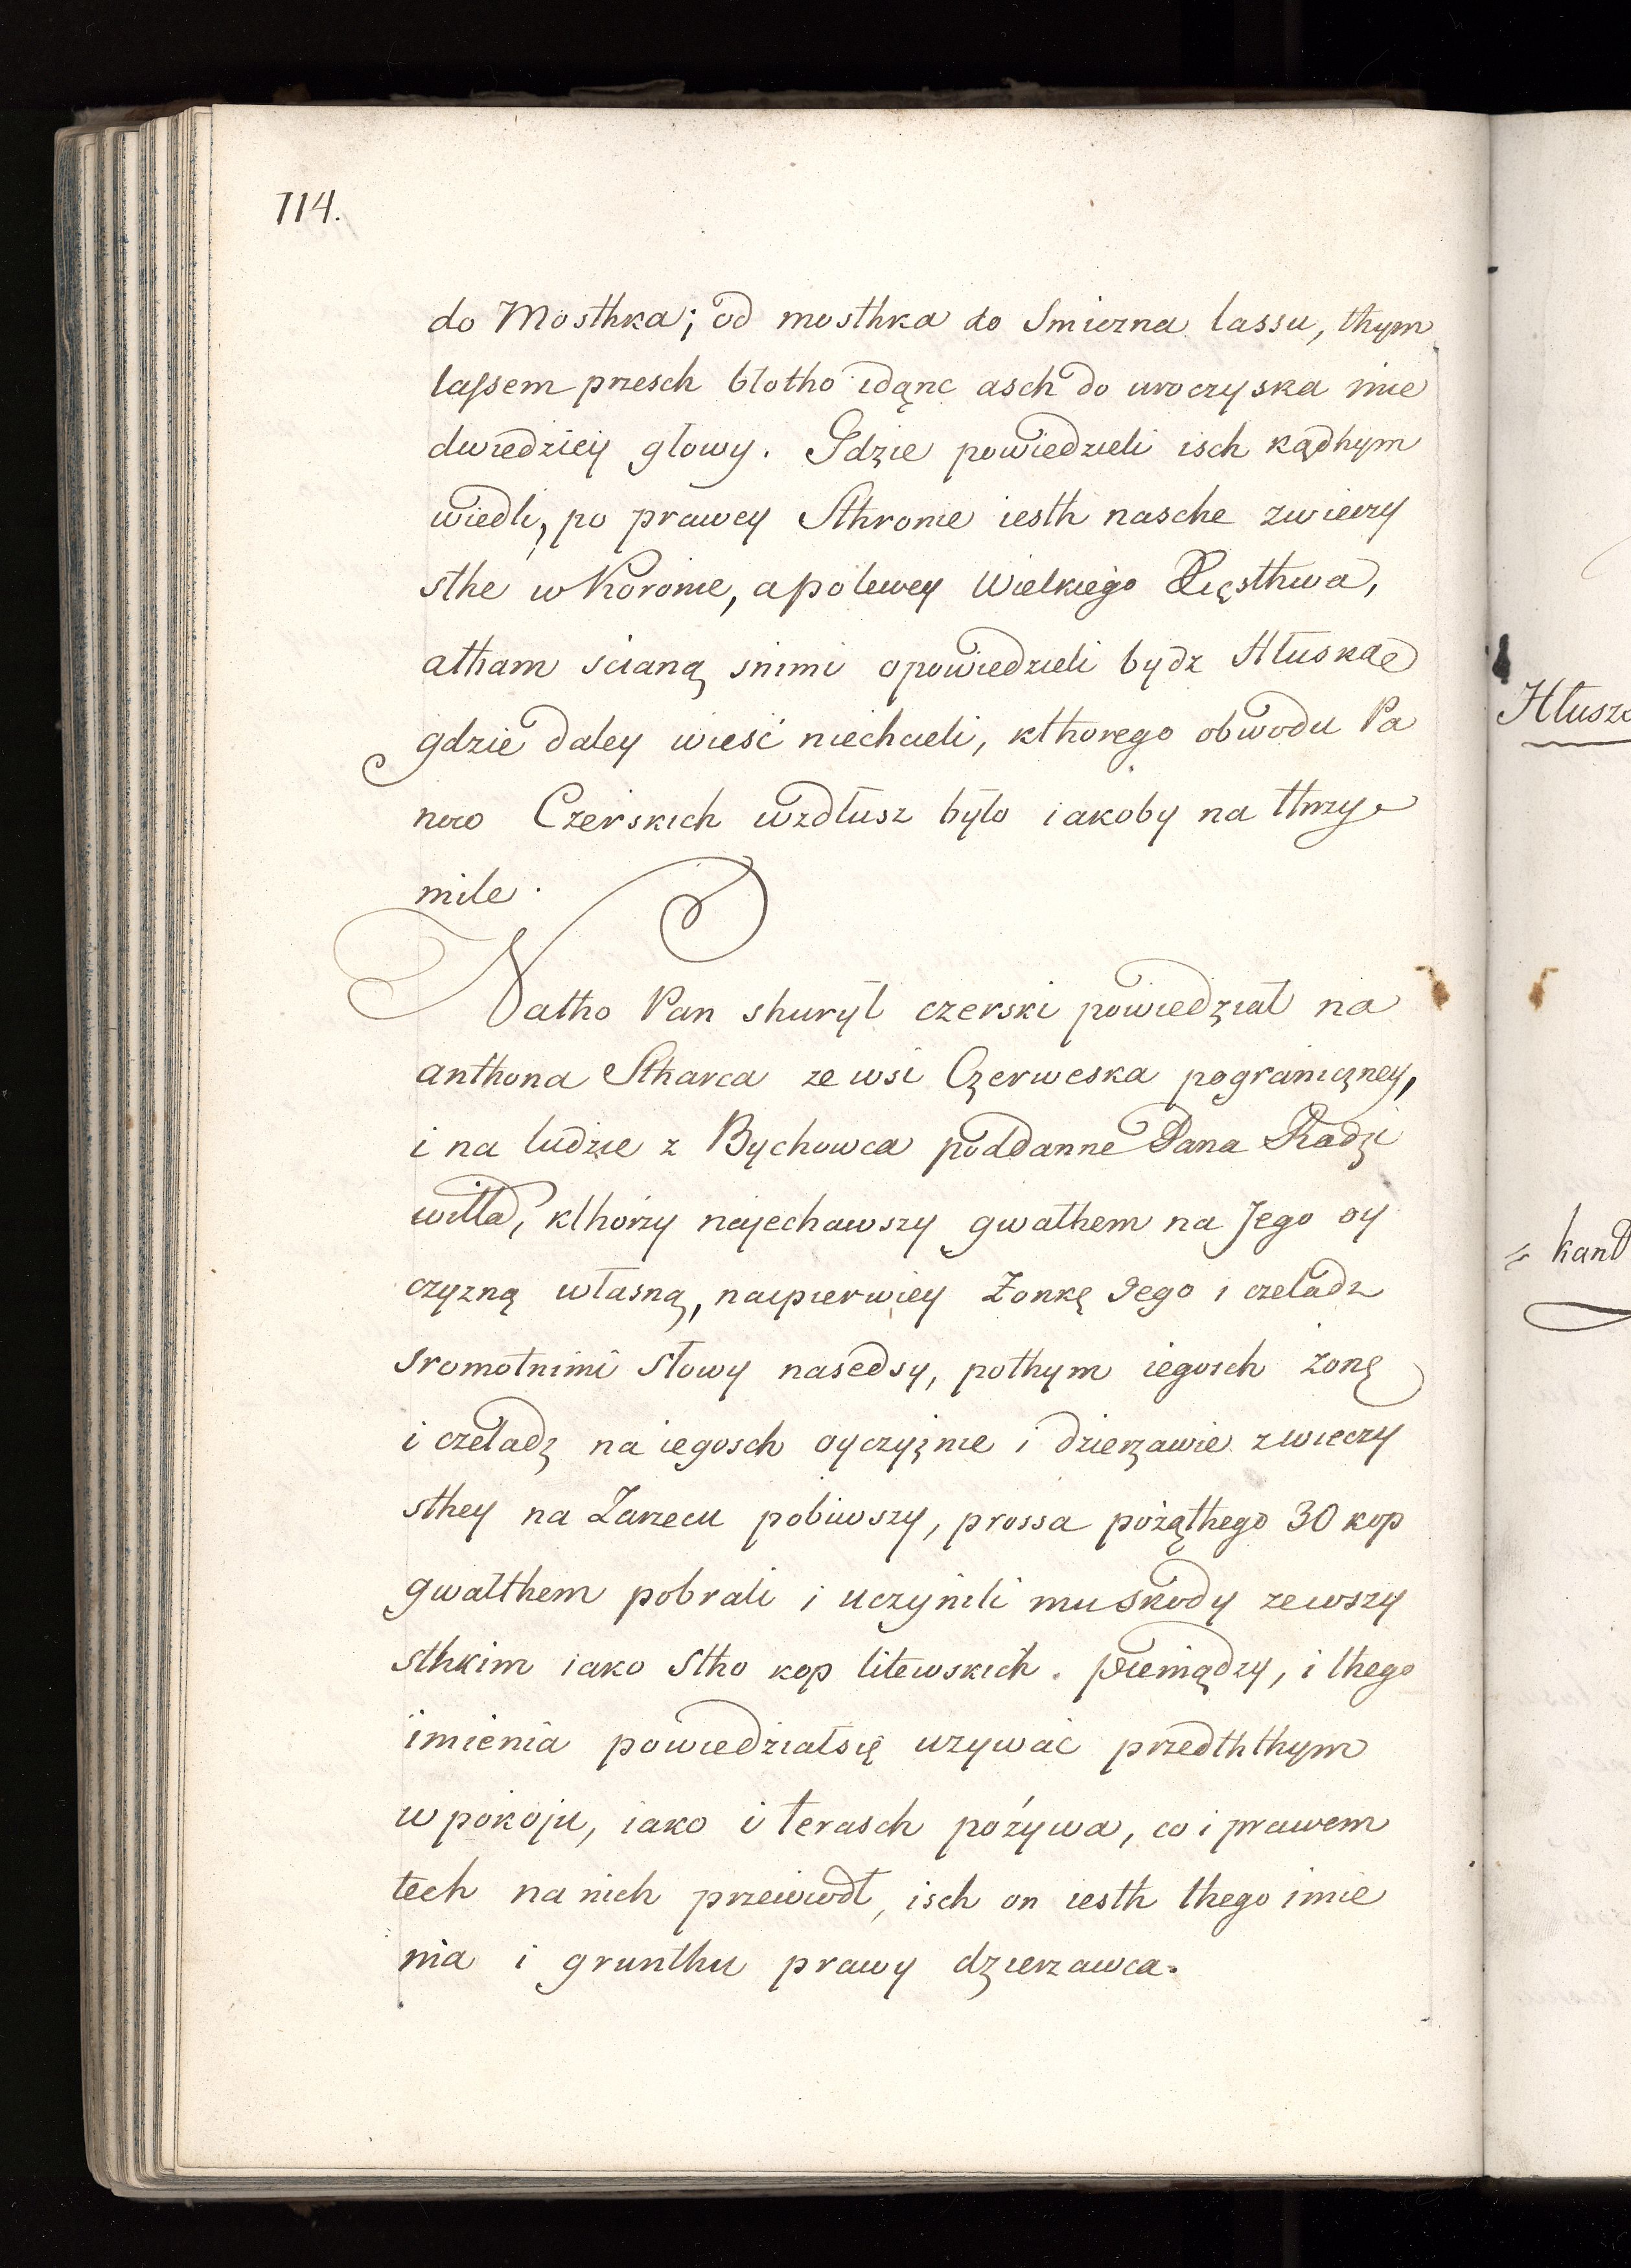 114.
do Mosthka; od mosthka do Smiczna lassu, thym
lassem przesch błotho idąnc asch do uroczyska imie
dwiedziey głowy. Gdzie powiedzieli isch kądhym
wiedli, po prawey Sthronie iesth nasche zwieczy
sthe w Koronie, a polewey Wielkiego Xięsthwa,
atham scianą snimi opowiedzieli bydz Hłuskae
gdzie daley wieść niechcieli, kthorego obwodu Pa
now Czerskich wzdłusz było iakoby na thrzy
mile.
Natho Pan shurył czerski powiedział na
anthona Stharca ze wsi Czerweska pograniczney,
i na ludzie z Bychowca poddanne Pana Radzi
wiłła, kthórzy najechawszy gwathem na Jego oy
czyzną własną, naypierwiey Żonkę Jego i czeladz
sromotnimi słowy nasedsy, pothym iegosch żonę
i czeladz na iegosch oyczyznie i dzierzawie zwieczy
sthey na Zarzecu pobiwszy, prossa pożąthego 30 kop
gwałthem pobrali i uczynili mu skody zewszy
sthkim iako stho kop litewskich. pieniądzy, i thego
imienia powiedziałsię uzywać przedththym
w pokoju, iako i terasch pożywa, co i prawem
tech na nich przewiodł, isch on iesth thego imie
nia i grunthu prawy dzierzawca.
Hłusz
kand